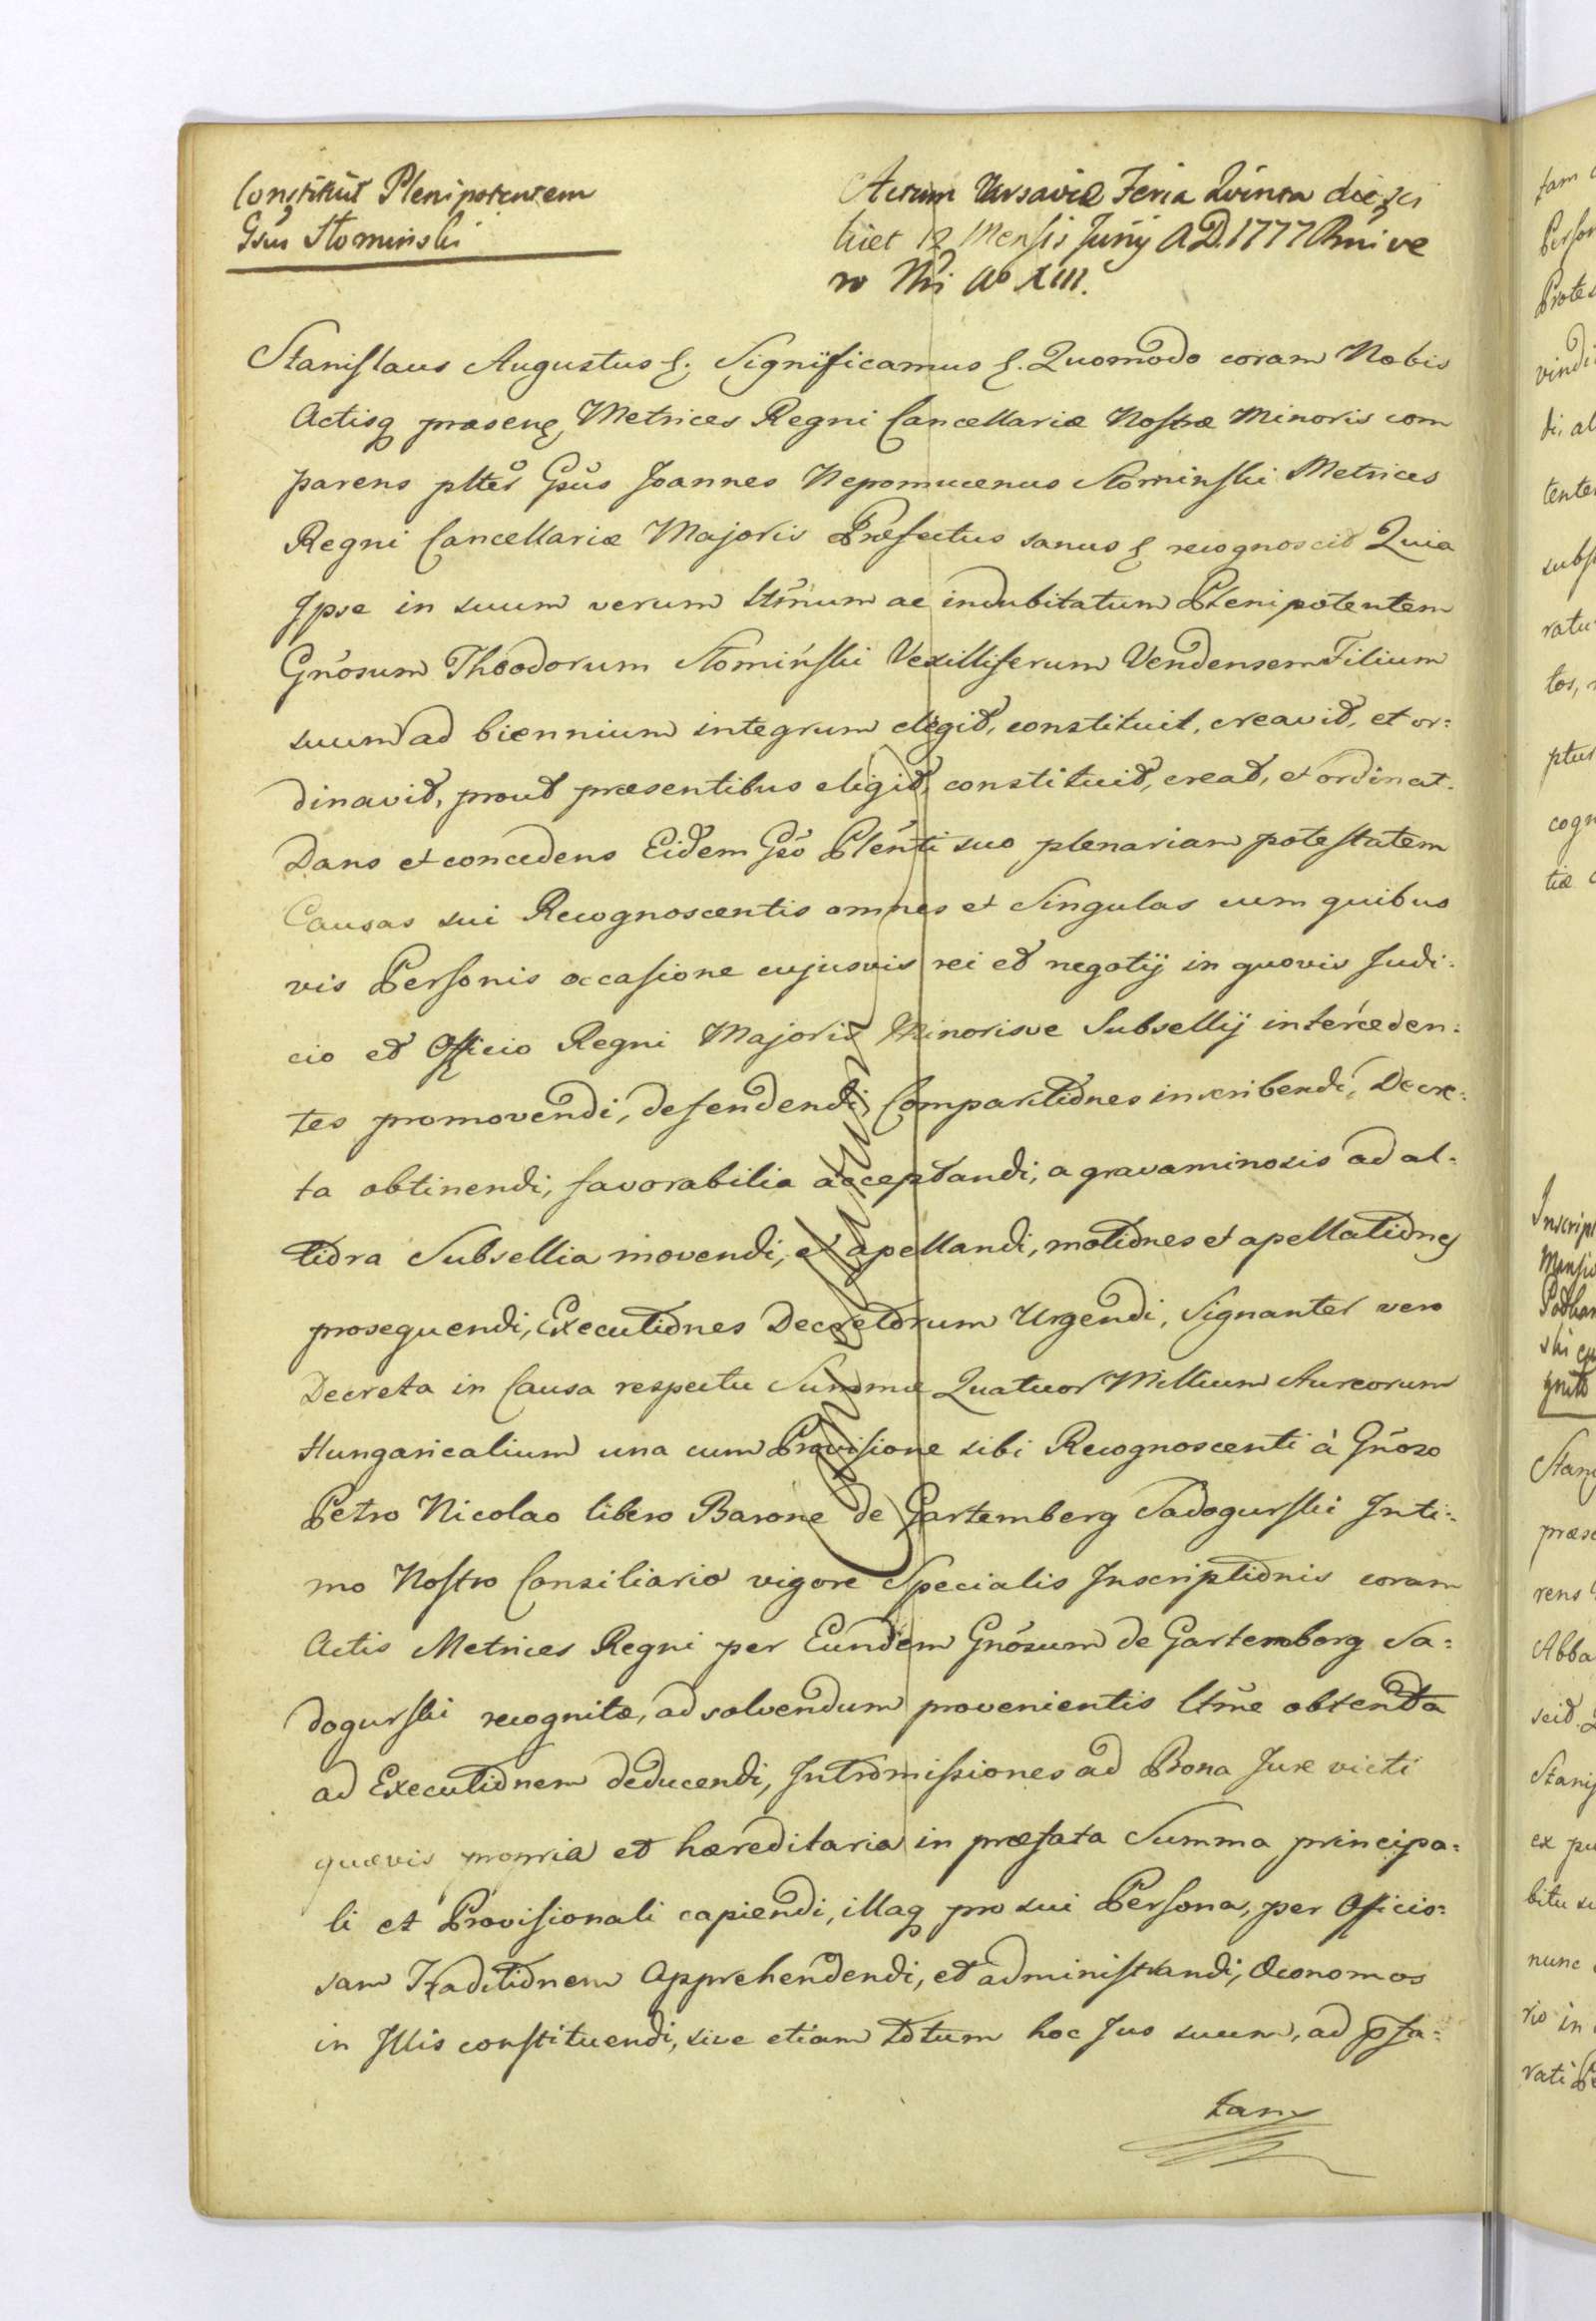 Constituit Plenipotentem
Gsus Słominski
Actum Varsaviæ Feria Quinta die sci
licet 12 Mensis Junÿ A.D. 1777 Rni ve
ro Nri Ao XIII.
Stanislaus Augustus &. Significamus &. Quomodo coram Nobis
Actisq præsenq Metrices Regni Cancellariæ Nostræ Minoris com
parens plter Gsus Joannes Nepomucenus Słominski Metrices
Regni Cancellariæ Majoris Præfectus sanus & recognoscit Quia
Ipse in suum verum ltimum ac indubitatum Plenipotentem
Gnosum Theodorum Słomiński Vexilliferum Vendensem Filium
suum ad biennium integrum elegit, constituit, creavit, et or=
dinavit, prout præsentibus eligit, constituit, creat, et ordinat.
Dans et concedens Eidem Gso Plenti suo plenariam potestatem
Causas sui Recognoscentis omnes et Singulas cum quibus
vis Personis occasione cujusvis rei et negotij in quovis Judi=
cio et Officio Regni Majoris Minorisve Subsellij interceden=
tes promovendi, defendendi, Comparitiones inscribendi, Decre=
ta obtinendi, favorabilia acceptandi, a gravaminosis ad al=
tiora Subsellia movendi, et apellandi, motiones et apellationes
prosequendi, Executiones Decretorum Urgendi, Signanter vero
Decreta in Causa respectu Summæ Quatuor Millium Aureorum
Hungaricalium una cum Provisione sibi Recognoscenti à Gnoso
Petro Nicolao libero Barone de Gartemberg Sadogurski Inti=
mo Nostro Consiliario vigore Specialis Inscriptionis coram
Actis Metrices Regni per Eundem Gnosum de Gartemberg Sa=
dogurski recognitæ, ad solvendum provenientis ltme obtenta
ad Executionem deducendi, Intromissiones ad Bona Jure victi
quævis propria et hæreditaria in præfata Summa principa=
li et Provisionali capiendi, illaq pro sui Persona, per Officio=
sam Traditionem Apprehendendi, et administrandi, Œconomos
in Illis constituendi, sive etiam totum hoc Jus suum, ad psa=
tam
tam
Person
Protes
vindi
di, al
tente
subs
ratu
tos,
ptur
cogn
tiæ
Inscrip
Mansio
ski
gnito
Stani
præse
rens
Abba
scit.
Stanis
ex pu
bitu
nunc
rio in
rati